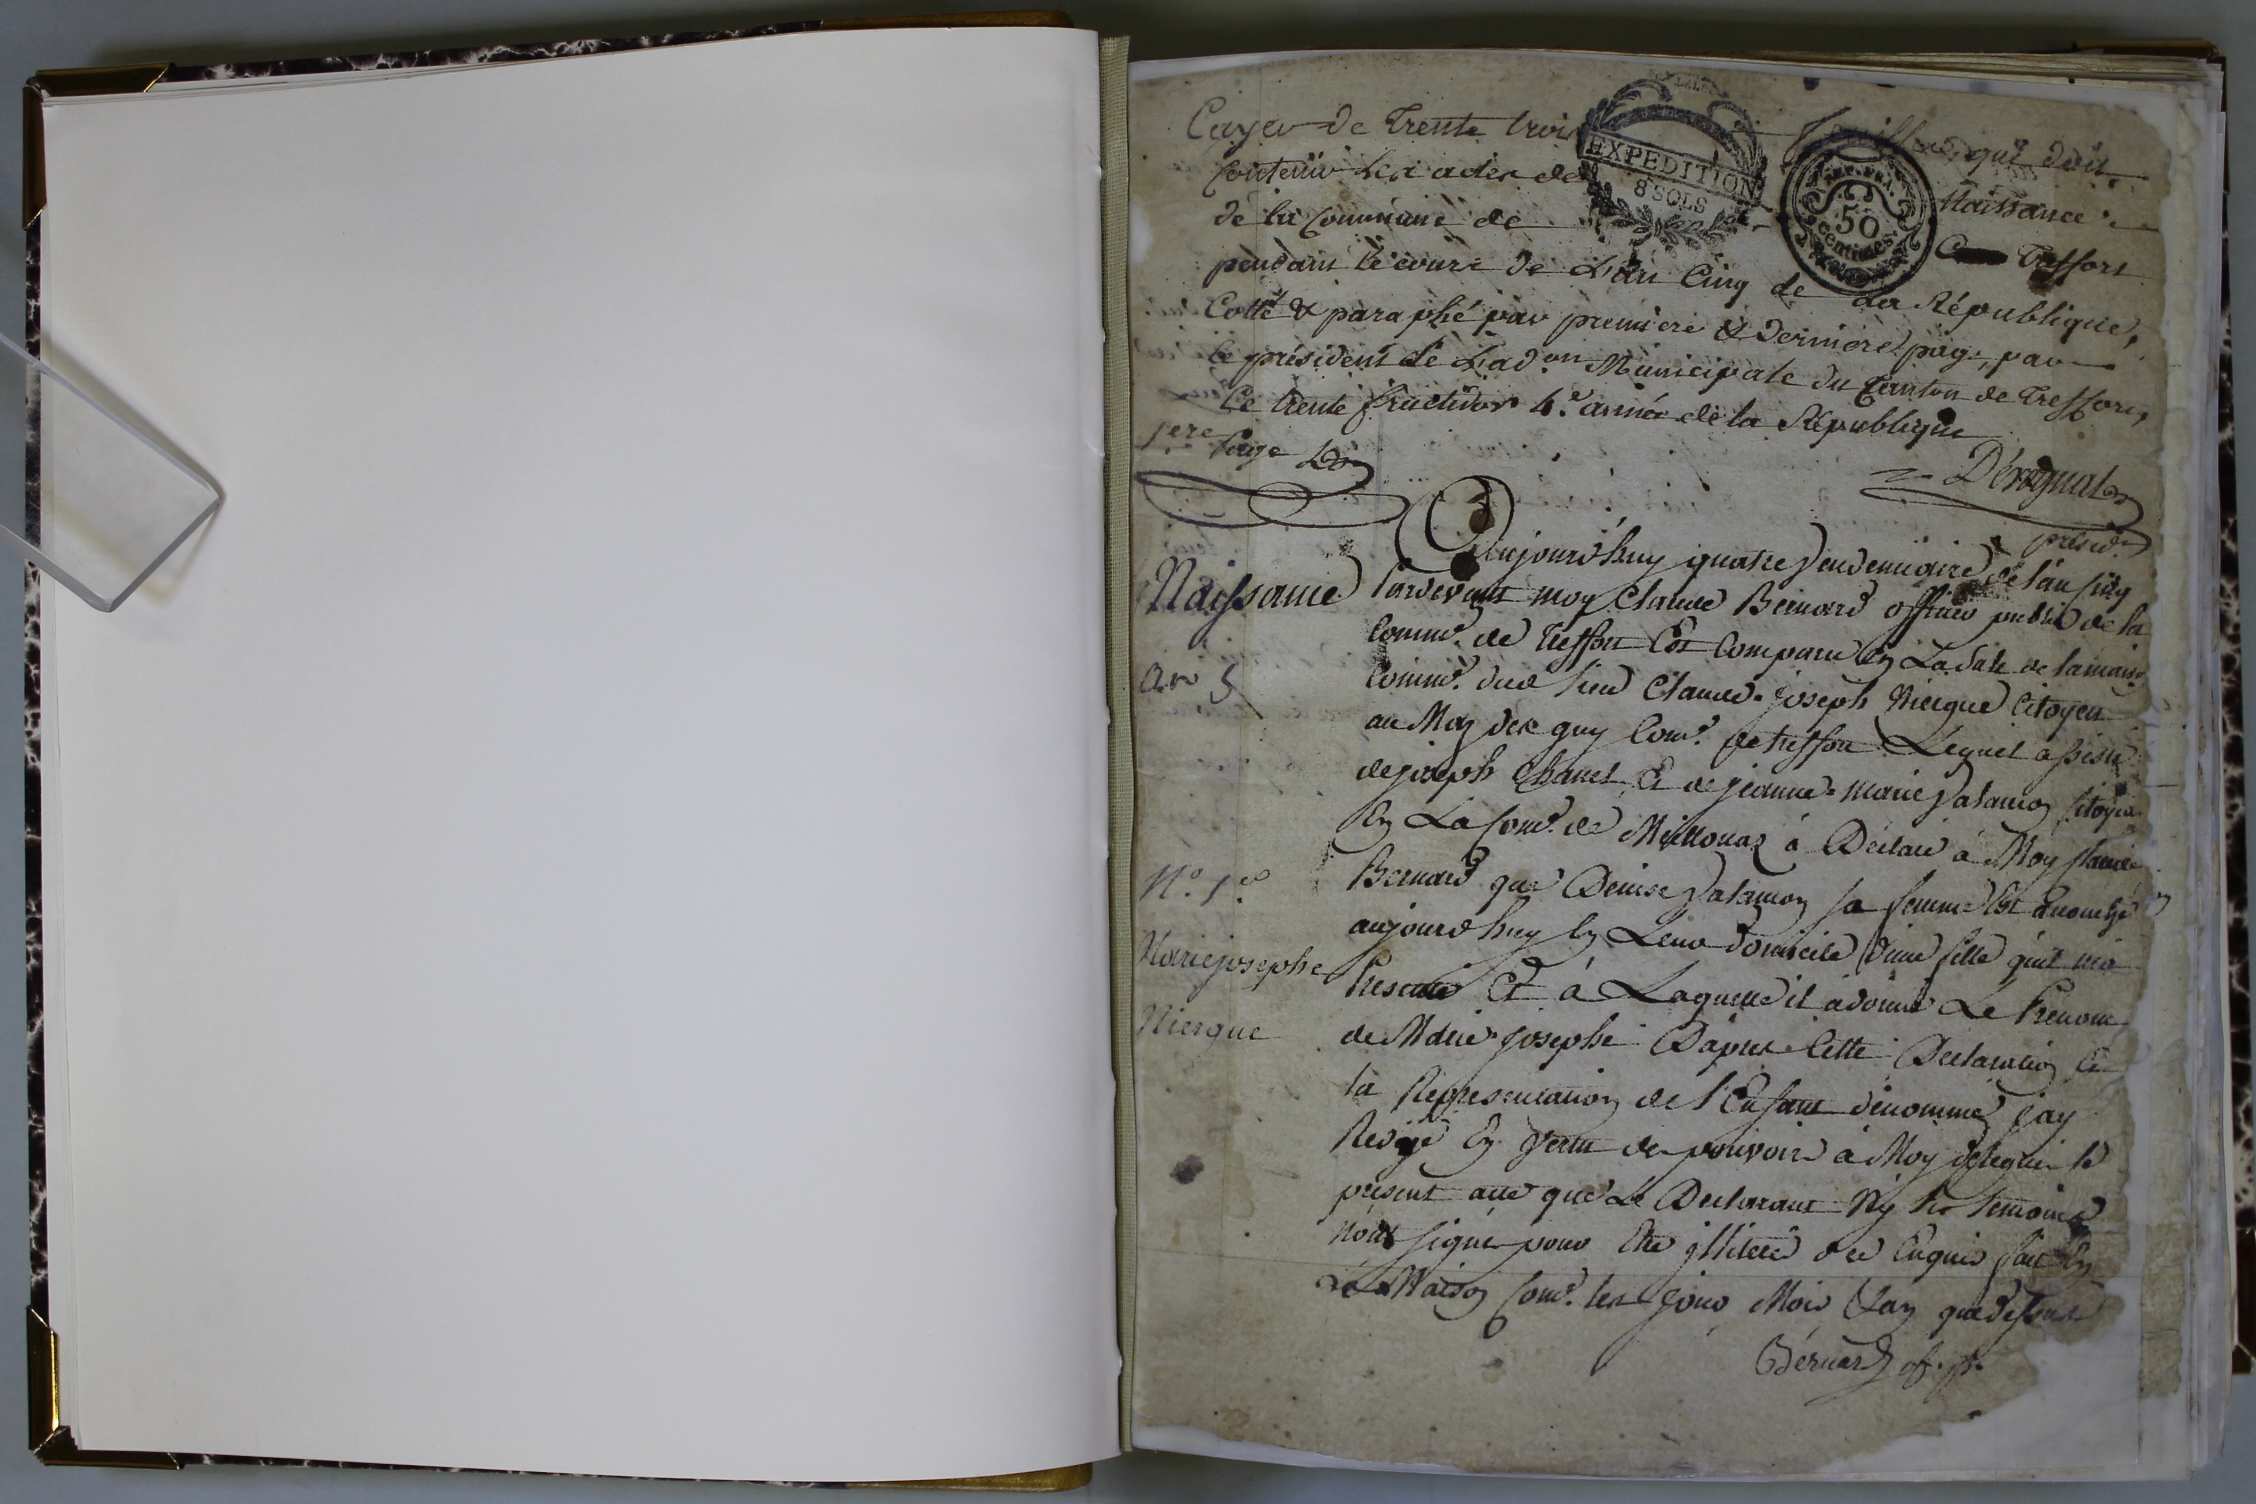 Cayer de trente trois feuilles, qui doit
EXPEDITION
8 SOLS
REP. FRA.
50
centimes.
contenir les actes de Naissance
de la commune de Treffort
pendant le cours de L'an Cinq de La République,
Cotté & paraphé par premiere & derniere page, par
le président de L'adon Municipale du Canton de Treffort,
Le trente fructidor 4e année de la République
1ere page
Dérognat
présidt
Naissance
an 5
N.o 1er
Marie josephe
Niergue
Aujourd'huy quatre Vendemiaire de l'an cinq
Pardevant moy Claude Bernard officier public de la
Comme. de Treffort Est Comparu En La Sale de la maison
Comme. dud lieu Claude-joseph Niergue Citoyen
au Mas des guy Come. de treffort Lequel assisté
de joseph Chanel Et de jeanne-Marie Valamon Citoyens
En La Come. de Meillonas à Déclaré à Moy Claude
Bernard que Denise Valamon sa femme Est accouché
aujourd'huy En Leur domicile d'une fille qu'il m'a
Presenté Et à Laquelle il à donné Le Prenom
de Marie-josephe D'apres Cette Declaration Et
la Representation de l'Enfant denommé jay
Redigé En Vertu des pouvoirs à Moy delegués le
present acte que Le Declarant Ny les temoins
N'ont signé pour Etre illiteré de ce Enquis fait En
La Maison Come. les jour, Mois & an que dessus
Bernard of. p.